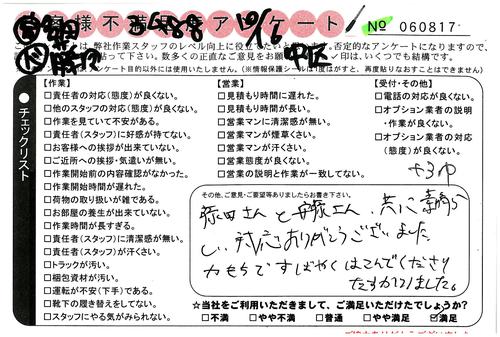 お客様不満足アンケート
№ 060817
は、弊社作業スタッフのレベル向上に役立てたい
す。否定的なアンケートになりますので、
貼って下さい。数多くの正直なご意見をお願
印は、いくつでも結構です。
アンケート目的以外には使用いたしません。(※情報保護シールは1度はがすと、再度貼りなおすことはできません)
チェックリスト
【作業】
□責任者の対応(態度)が良くない。
□他のスタッフの対応(態度)が良くない。
□作業を見ていて不安がある。
□責任者(スタッフ)に好感が持てない。
□お客様への挨拶が出来ていない。
□ご近所への挨拶・気遣いが無い。
□作業開始前の内容確認がなかった。
□作業開始時間が遅れた。
□荷物の取り扱いが雑である。
□お部屋の養生が出来ていない。
□作業時間が長すぎる。
□責任者(スタッフ)に清潔感が無い。
□責任者(スタッフ)が汗くさい。
□トラックが汚い。
□梱包資材が汚い。
□運転が不安(下手)である。
□靴下の履き替えをしてない。
□スタッフにやる気がみられない。
【営業】
□見積もり時間に遅れた。
□見積もり時間が長い。
□営業マンに清潔感が無い。
□営業マンが煙草くさい。
□営業マンが汗くさい。
□営業態度が良くない。
□営業の説明と作業が一致してない。
【受付・その他】
□電話の対応が良くない。
□オプション業者の説明
・作業が良くない。
□オプション業者の対応
(態度)が良くない。
その他、ご意見・ご要望等ありましたらお書き下さい。
さんと安藤さん、共に素晴ら
しい対応ありがとうございました。
力もちですばやくはこんでくださり
たすかりました。
☆当社をご利用いただきまして、ご満足いただけたでしょうか?
□不満 □やや不満 □普通 □やや満足 □満足